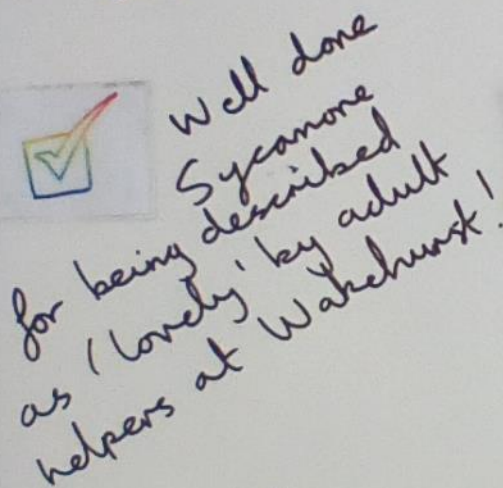 Well done
Sycamore
for being described
as 'lovely' by adult
helpers at Wakehurst!